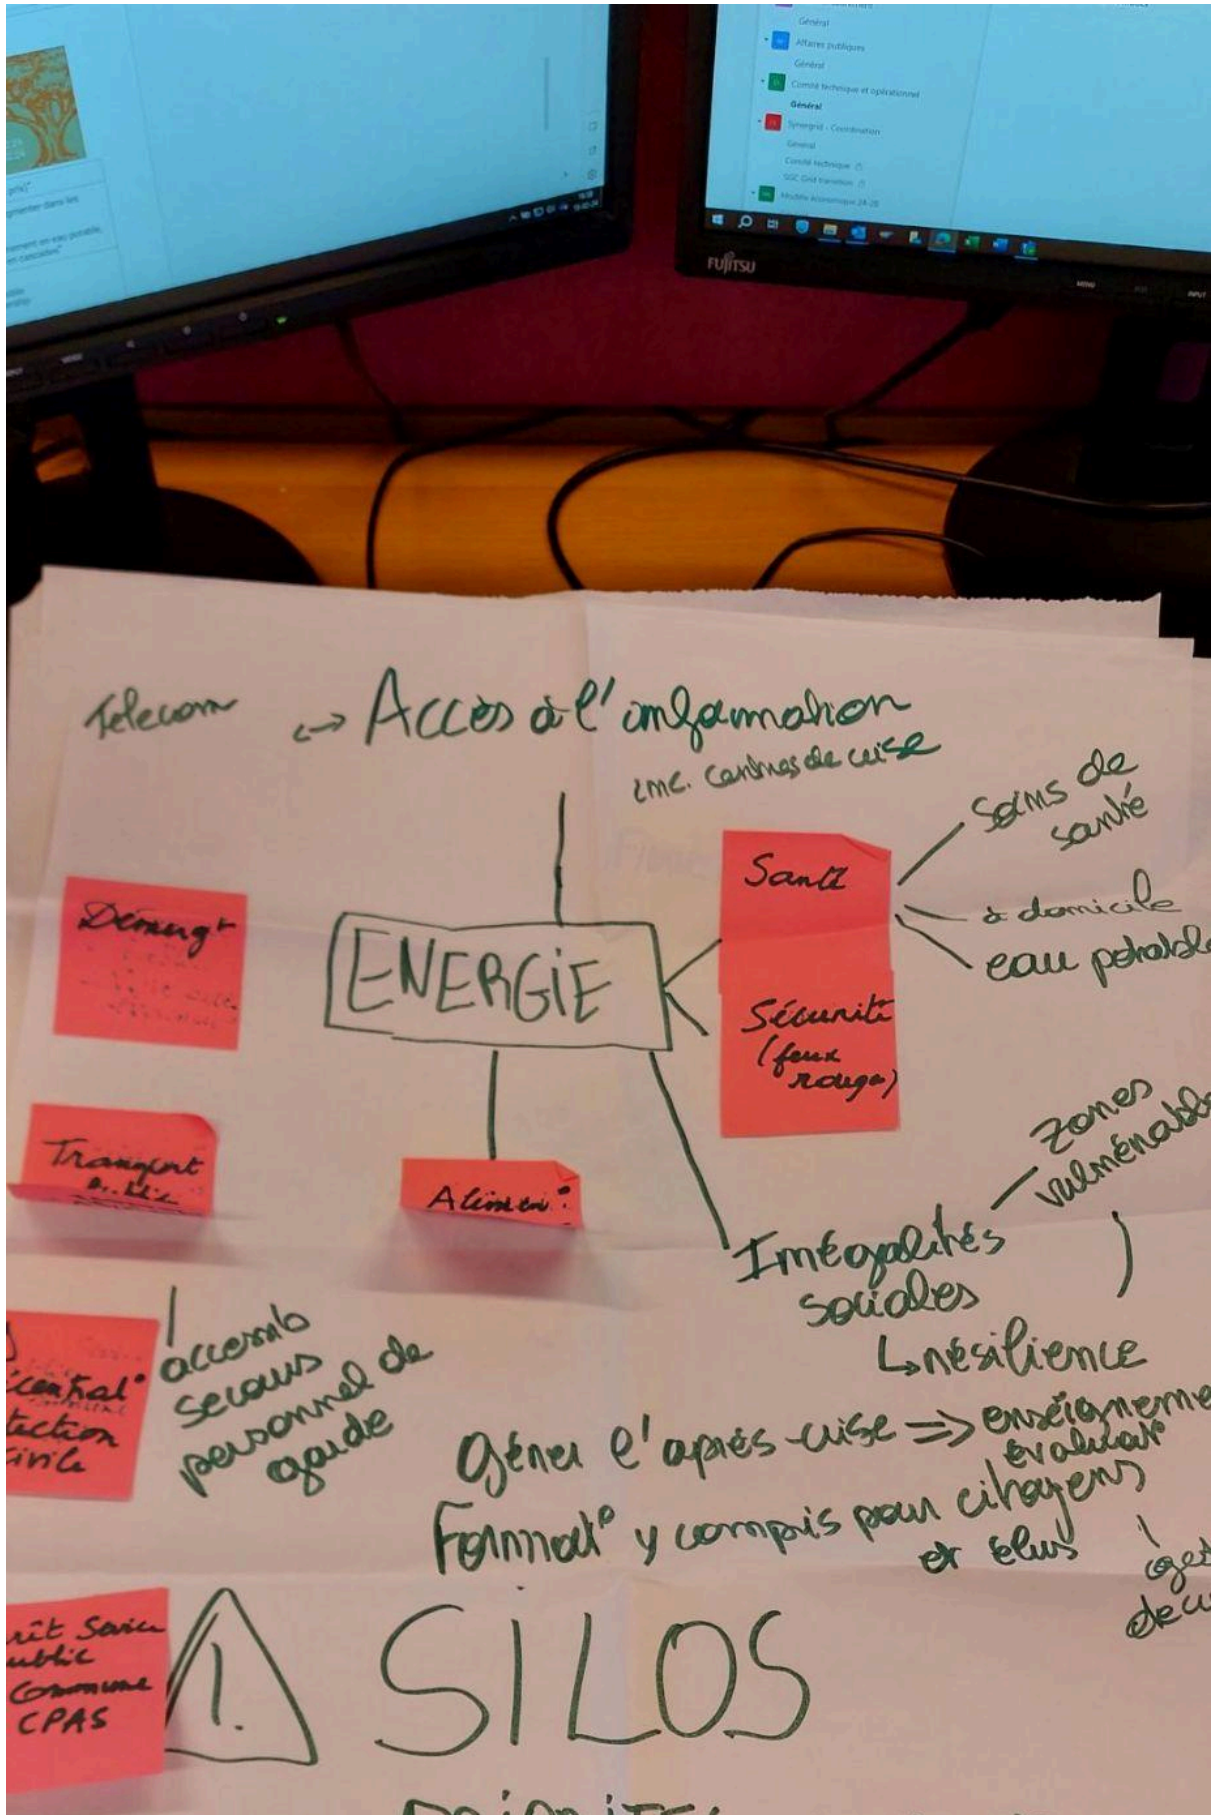 Général
Affaires publiques
Général
Comité technique et opérationnel
Général
Synergrid - Coordination
Général
Comité technique
SGC Grid transition
Modèle économique 2A-2B
FUJITSU
MENU
INPUT
Telecom <-> Accès à l'information
inc. centres de crise
Soins de
santé
à domicile
eau potable
Santé
Sécurité
(feux
rouges)
Déneigt
ENERGiE
Transport
public
Aliment°
zones
vulnérables
Inégalités
sociales
↳ résilience
accessib
secours
personnel de
garde
central°
tection
ivile
Gérer l'après-crise => enseigneme
évaluat°
Format° y compris pour citoyens
et élus
gest
de cr
rêt Service
ublic
Commune
CPAS
! SILOS
PRIORITES